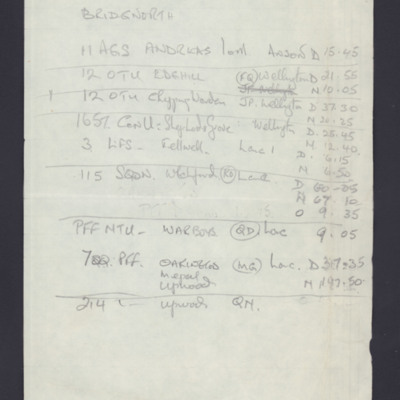 BRIDGNORTH
11 AGS ANDREAS 10M ANSON D 15.45
12 OTU EDGEHILL (FQ) Wellington D 21.55
N 10.05
1 12 OTU Chipping Warden JP. Wellington D 37.30
N 21.25
1657 Con U - Wellington D. 25.45
N 12.40
3 LFS - Feltwell. Lanc 1 D. 4.15
N 4.50
115 SQDN. Witchford (KO) Lanc D. 60.05
N 67.10
O 9.35
PFF NTU - WARBOYS (QD) Lac 9.05
7 PFF. OAKINGTON (MG) Lanc. D 37.35
mepal
upwood N 147.50
214 upwood QN.